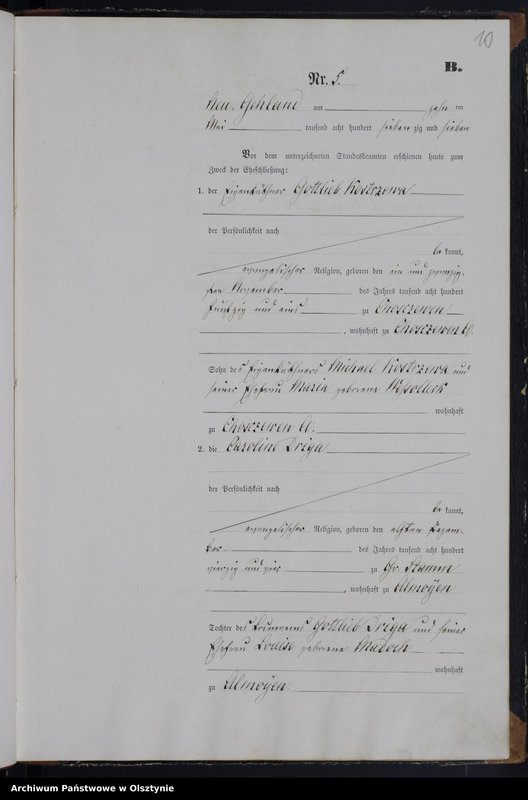 10
B.
Nr. 5.
Neu Gehland am zehn ten
Mai tausend acht hundert sieben zig und sieben
Vor dem unterzeichneten Standesbeamten erschienen heute zum
Zweck der Eheschließung:
1. der Eigenkäthner Gottlieb Kostrzewa
der Persönlichkeit nach
be kannt,
evangelischer Religion, geboren den ein und zwanzig-
sten November des Jahres tausend acht hundert
fünfzig und eins zu Choszewen
, wohnhaft zu Choszewen A.
Sohn des Eigenkäthners Michael Kostrzewa und
seiner Ehefrau Maria geborene Wessolleck
wohnhaft
zu Choszewen A.
2. die Caroline Driga
der Persönlichkeit nach
be kannt,
evangelischer Religion, geboren den elften Dezem-
ber des Jahres tausend acht hundert
vierzig und vier zu Gr. Stamm
, wohnhaft zu Allmoyen
Tochter des Gottlieb Driga und seiner
Ehefrau Louise geborene Maroch
wohnhaft
zu Allmoyen
Archiwum Państwowe w Olsztynie